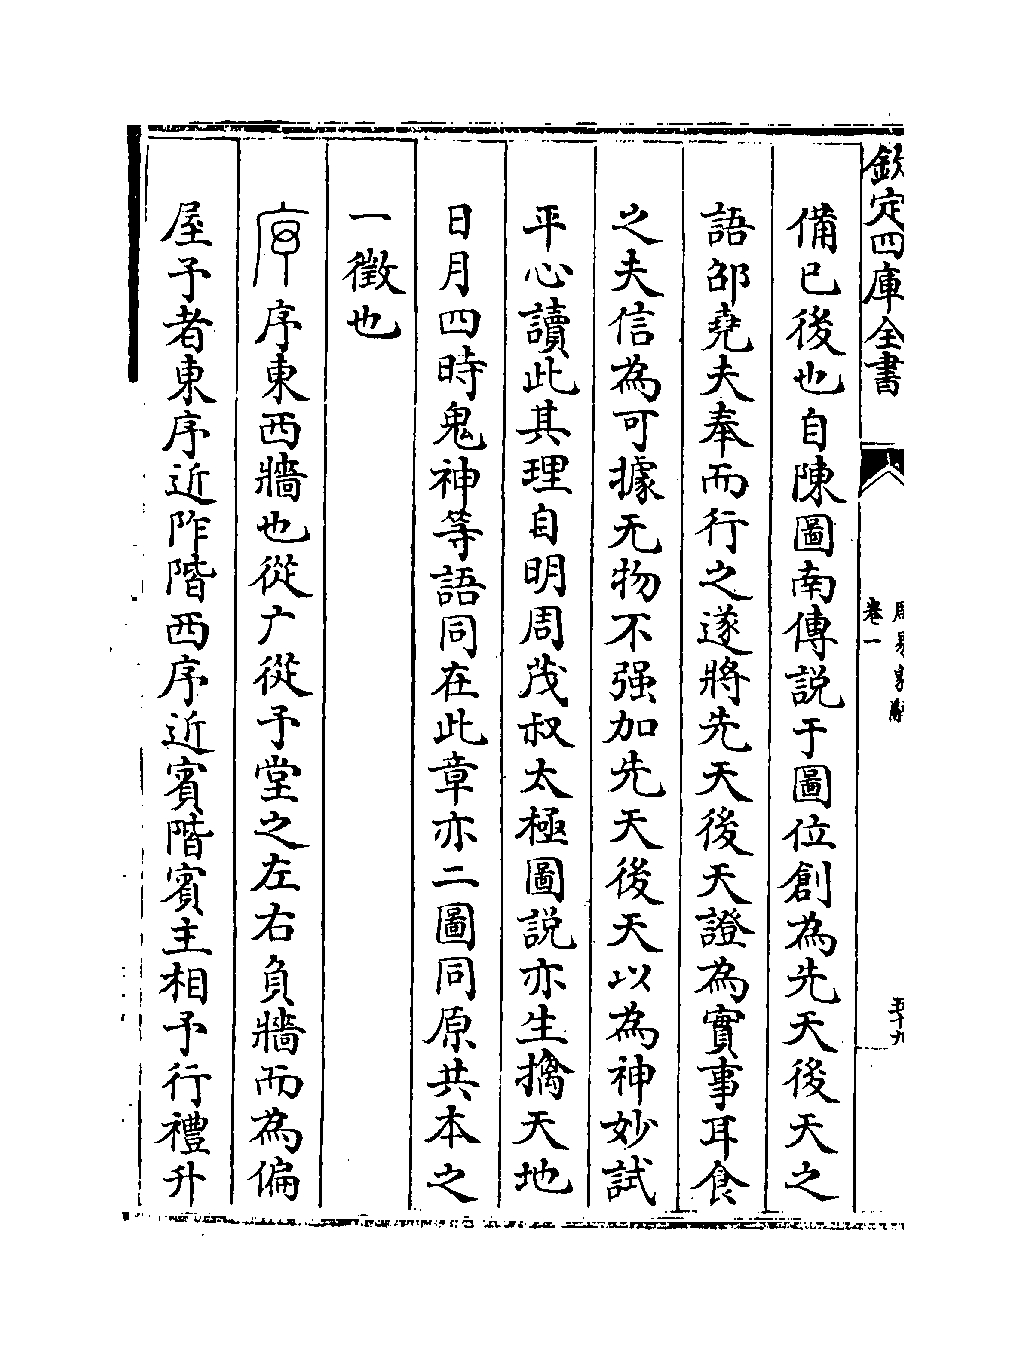 欽定四庫全書
卷一
備已後也自陳圖南傳説于圖位創為先天後天之
語邵堯夫奉而行之遂將先天後天證為實事耳食
之夫信為可據无物不强加先天後天以為神妙試
平心讀此其理自明周茂叔太極圖説亦生擒天地
日月四時鬼神等語同在此章亦二圖同原共本之
一徵也
序東西牆也從广從予堂之左右負牆而為偏
屋予者東序近阼階西序近賓階賓主相予行禮升